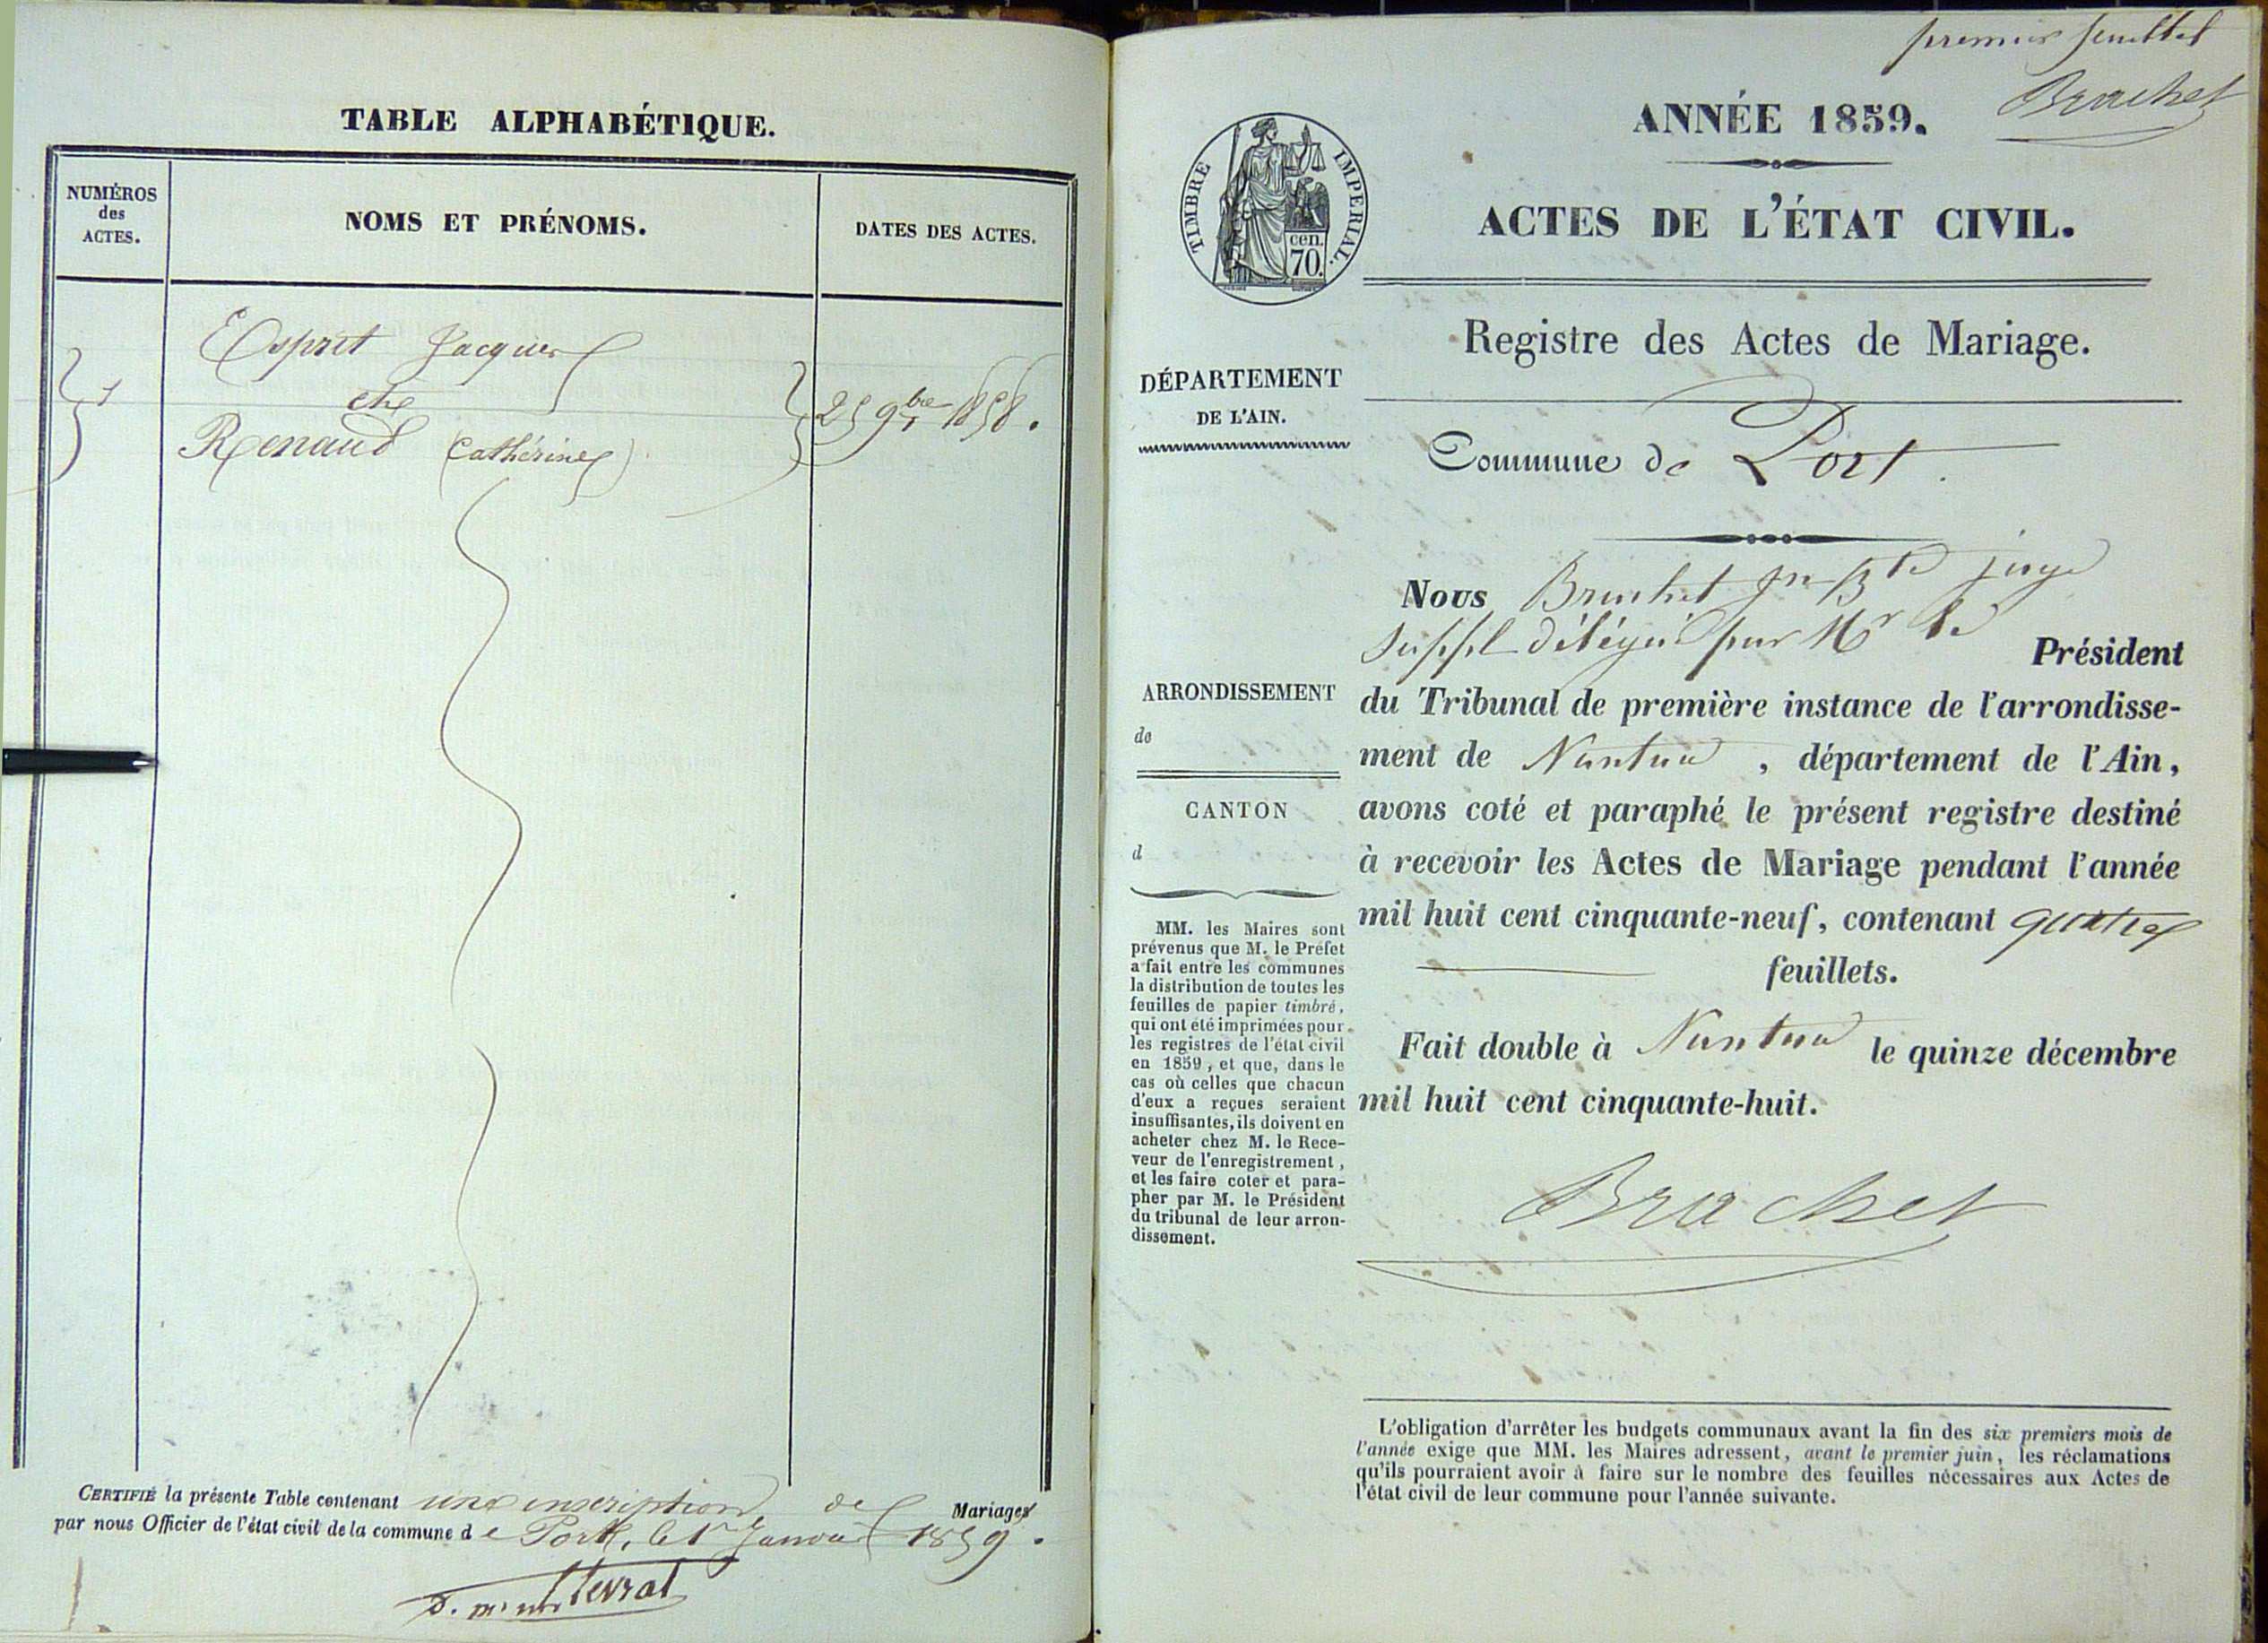 TABLE ALPHABÉTIQUE.
NUMÉROS
des
ACTES.
NOMS ET PRÉNOMS.
DATES DES ACTES.
Esprit Jacques
1
et
25 9bre 1858.
Renaud (Cathérine)
CERTIFIÉ la présente Table contenant une inscription de Mariages
par nous Officier de l'état civil de la commune de Port, le 1er Janvier 1859.
premier feuillet
Brachet
ANNÉE 1859.
TIMBRE IMPERIAL.
cen.
70.
ACTES DE L'ÉTAT CIVIL.
Registre des Actes de Mariage.
DÉPARTEMENT
DE L'AIN.
Commune de Port.
Nous Brachet Jn Bte juge
suppl délégué par Mr le
Président
du Tribunal de première instance de l'arrondisse-
ment de Nantua, département de l'Ain,
avons coté et paraphé le présent registre destiné
à recevoir les Actes de Mariage pendant l'année
mil huit cent cinquante-neuf, contenant quatre
feuillets.
Fait double à Nantua le quinze décembre
mil huit cent cinquante-huit.
Brachet
ARRONDISSEMENT
de
CANTON
d
MM. les Maires sont
prévenus que M. le Préfet
a fait entre les communes
la distribution de toutes les
feuilles de papier timbré,
qui ont été imprimées pour
les registres de l'état civil
en 1859, et que, dans le
cas où celles que chacun
d'eux a reçues seraient
insuffisantes, ils doivent en
acheter chez M. le Rece-
veur de l'enregistrement,
et les faire coter et para-
pher par M. le Président
du tribunal de leur arron-
dissement.
L'obligation d'arrêter les budgets communaux avant la fin des six premiers mois de
l'année exige que MM. les Maires adressent, avant le premier juin, les réclamations
qu'ils pourraient avoir à faire sur le nombre des feuilles nécessaires aux Actes de
l'état civil de leur commune pour l'année suivante.